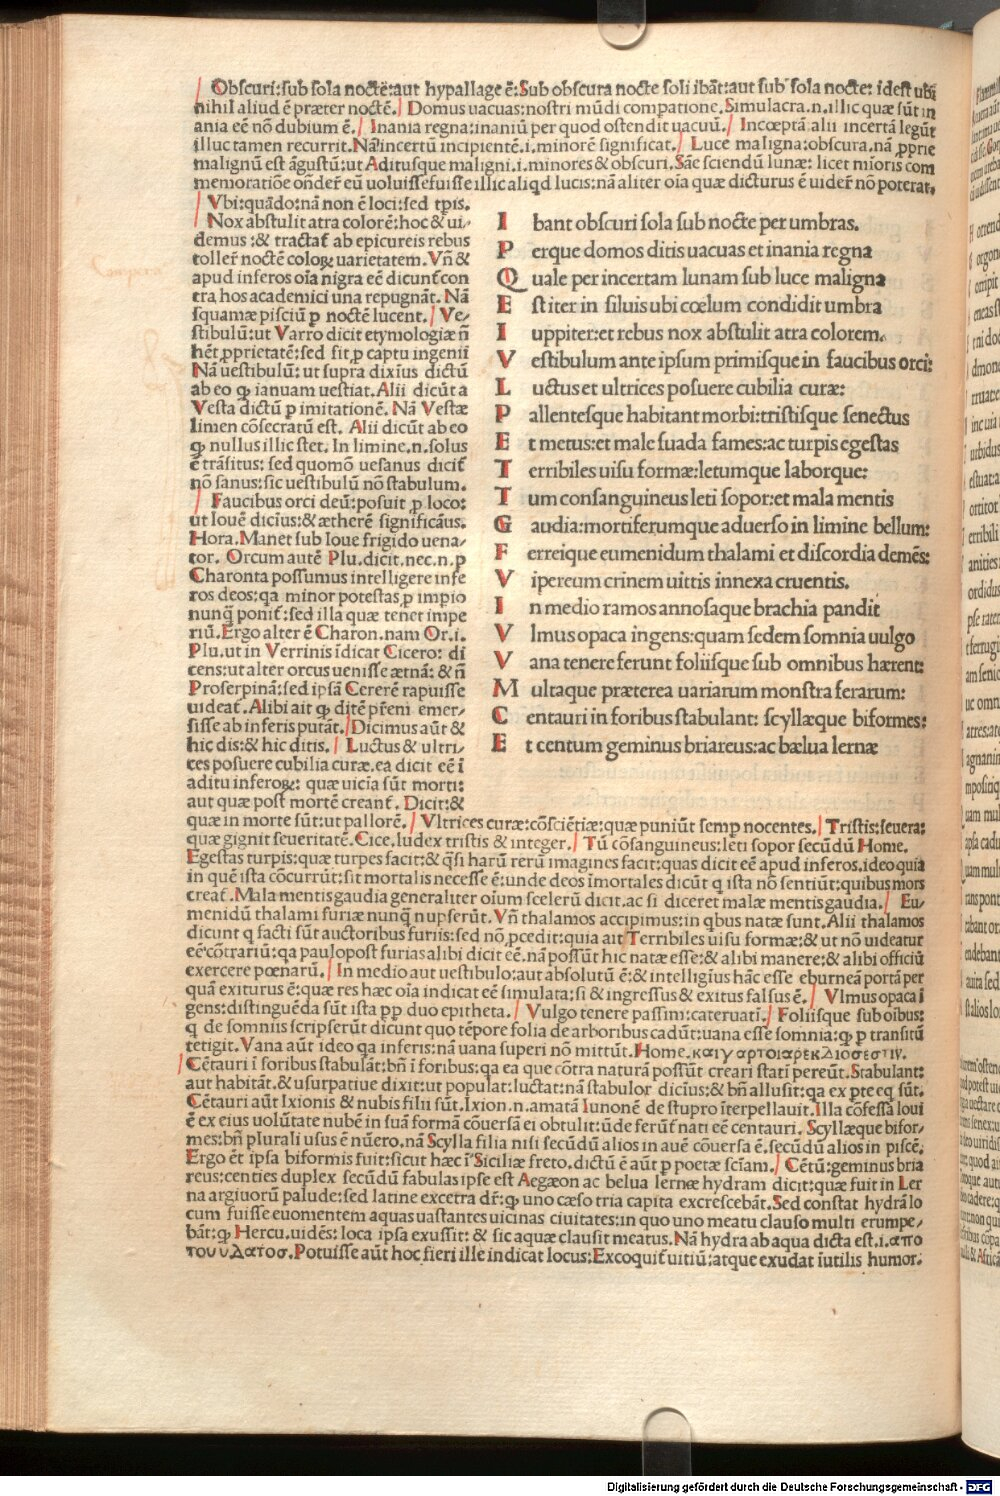 Obscuri:sub sola noctē:aut hypallage ē:Sub obscura nocte soli ibāt:aut sub sola nocte: idest ubi
nihil aliud ē præter noctē. Domus uacuas:nostri mūdi compatione.Simulacra.n.illic quæ sūt in
ania eē nō dubium ē. Inania regna:inaniū per quod ostendit uacuū. Incœptā alii incertā legūt
illuc tamen recurrit.Nā incertū incipientē.i.minorē significat. Luce maligna:obscura.nā ꝓprie
malignū est āgustū:ut Aditusque maligni.i.minores & obscuri.Sāe sciendū lunæ: licet mīoris com
memoratiōe oñder̄ eū uoluisse fuisse illic aliqd lucis:nā aliter oīa quæ dicturus ē uider̄ nō poterat.
Vbi:quādo:nam non ē loci:sed tp̄is.
Nox abstulit atra colorē:hoc & ui-
demus :& tractat̄ ab epicureis rebus
toller̄ noctē coloꝝ uarietatem.Vñ &
apud inferos oīa nigra eē dicunt̄ con
tra hos academici una repugnāt. Nā
squamæ pisciū p̱ noctē lucent. Ve-
stibulū:ut Varro dicit etymologiæ ñ
hēt ꝓprietatē:sed fit ꝓ captu ingenii
Nā uestibulū: ut supra dixiūs dictū
ab eo ꝙ ianuam uestiat.Alii dicūt a
Vesta dictū p̱ imitationē. Nā Vestæ
limen cōsecratū est. Alii dicūt ab eo
ꝙ nullus illic stet. In limine.n.solus
ē trāsitus: sed quomō uesanus dicit̄
nō sanus:sic uestibulū nō stabulum.
Faucibus orci deū:posuit ꝓ loco:
ut Iouē diciūs:& ætherē significāus.
Hora.Manet sub Ioue frigido uena-
tor. Orcum autē Plu.dicit.nec.n.p̱
Charonta possumus intelligere infe
ros deos:qa minor potestas ꝓ impio
nunq̄ ponit̄:sed illa quæ tenet impe
riū.Ergo alter ē Charon.nam Or.i.
Plu.ut in Verrinis īdicat Cicero: di
cens:ut alter orcus uenisse ætnā: & ñ
Proserpinā:sed ipsā Cererē rapuisse
uideat̄.Alibi ait ꝙ ditē p̄reni emer-
sisse ab inferis putāt. Dicimus aūt &
hic dis:& hic ditis. Luctus & ultri-
ces posuere cubilia curæ.ea dicit eē ī
aditu inferoꝝ: quæ uicīa sūt morti:
aut quæ post mortē creant̄. Dicit:&
I bant obscuri sola sub nocte per umbras.
P erque domos ditis uacuas et inania regna
Q uale per incertam lunam sub luce maligna
E st iter in siluis ubi cœlum condidit umbra
I uppiter:et rebus nox abstulit atra colorem.
V estibulum ante ipsum primisque in faucibus orci:
L uctus et ultrices posuere cubilia curæ:
P allentesque habitant morbi:tristisque senectus
E t metus:et male suada fames:ac turpis egestas
T erribiles uisu formæ:letumque laborque:
T um consanguineus leti sopor:et mala mentis
G audia:mortiferumque aduerso in limine bellum:
F erreique eumenidum thalami et discordia demēs:
V ipereum crinem uittis innexa cruentis.
I n medio ramos annosaque brachia pandit
V lmus opaca ingens:quam sedem somnia uulgo
V ana tenere ferunt foliisque sub omnibus hærent:
M ultaque præterea uariarum monstra ferarum:
C entauri in foribus stabulant: scyllæque biformes:
E t centum geminus briareus:ac bælua lernæ
quæ in morte sūt:ut pallorē. Vltrices curæ:cōsciētiæ:quæ puniūt semp̱ nocentes. Tristis:seuera:
quæ gignit seueritatē.Cice.Iudex tristis & integer. Tū cōsanguineus:leti sopor secūdū Home.
Egestas turpis:quæ turpes facit:& q̄si harū rerū imagines facit:quas dicit eē apud inferos.ideo quia
in quē ista cōcurrūt:sit mortalis necesse ē:unde deos īmortales dicūt q ista nō sentiūt:quibus mors
creat̄.Mala mentis gaudia generaliter oīum scelerū dicit.ac si diceret malæ mentis gaudia. Eu-
menidū thalami furiæ nunq̄ nupserūt.Vñ thalamos accipimus:in qbus natæ sunt.Alii thalamos
dicunt q facti sūt auctoribus furiis:sed nō ꝓcedit:quia ait Terribiles uisu formæ:& ut nō uideatur
eē cōtrariū:qa paulopost furias alibi dicit eē.nā possūt hic natæ esse:& alibi manere:& alibi officiū
exercere pœnarū. In medio aut uestibulo:aut absolutū ē:& intelligius hāc esse eburneā portā per
quā exiturus ē:quæ res hæc oīa indicat eē simulata:si & ingressus & exitus falsus ē. Vlmus opaca ī
gens:distinguēda sūt ista pp duo epitheta. Vulgo tenere passim:cateruati. Foliisque sub oībus:
q de somniis scripserūt dicunt quo tēpore folia de arboribus cadūt:uana esse somnia:ꝙ p̱ transitū
tetigit.Vana aūt ideo qa inferis:nā uana superi nō mittūt.Home.
Cētauri ī foribus stabulāt:bñ ī foribus:qa ea que cōtra naturā possūt creari stati pereūt.Stabulant:
aut habitāt.& usurpatiue dixit:ut populat:luctat:nā stabulor diciūs:& bñ allusit:qa ex p̱te eq sūt.
Cētauri aūt Ixionis & nubis filii sūt.Ixion.n.amatā Iunonē de stupro īterpellauit.Illa cōfessa Ioui
ē ex eius uolūtate nubē in suā formā cōuersā ei obtulit:ūde ferūt̄ nati eē centauri. Scyllæque bifor-
mes:bñ plurali usus ē nūero.nā Scylla filia nisi secūdū alios in auē cōuersa ē.secūdū alios in piscē.
Ergo ēt ipsa biformis fuit:sicut hæc ī Siciliæ freto.dictū ē aūt p̱ poetæ scīam. Cētū:geminus bria
reus:centies duplex secūdū fabulas ipse est Aegæon ac belua lernæ hydram dicit:quæ fuit in Ler
na argiuorū palude:sed latine excetra dr̄:ꝙ uno cæso tria capita excrescebāt.Sed constat hydrā lo
cum fuisse euomentem aquas uastantes uicinas ciuitates:in quo uno meatu clauso multi erumpe-
bāt:ꝙ Hercu.uidēs: loca ipsa exussit: & sic aquæ clausit meatus. Nā hydra ab aqua dicta est.i.απο
του υδατοσ.Potuisse aūt hoc fieri ille indicat locus:Excoquit̄ uitiū:atque exudat īutilis humor.
Digitalisierung gefördert durch die Deutsche Forschungsgemeinschaft - DFG